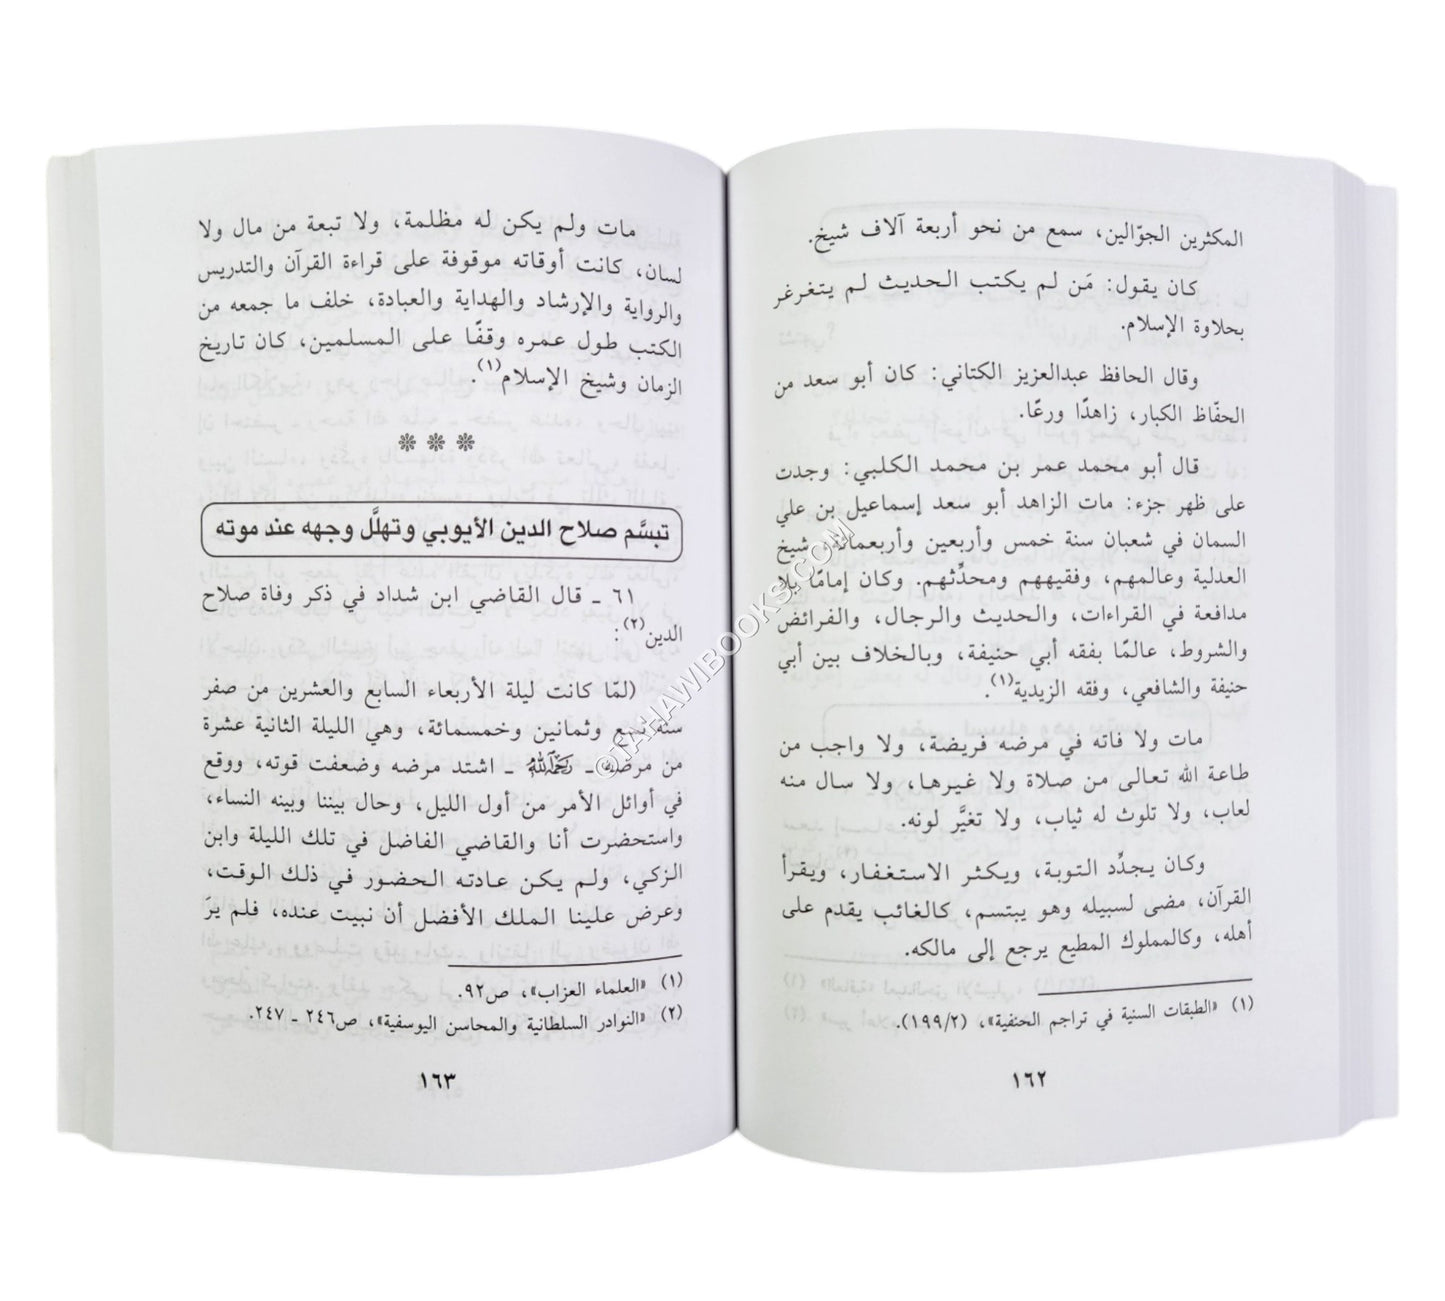 المكثرين الجوّالين، سمع من نحو أربعة آلاف شيخ.
كان يقول: مَن لم يكتب الحديث لم يتغرغر
بحلاوة الإسلام.
وقال الحافظ عبدالعزيز الكتاني: كان أبو سعد من
الحفّاظ الكبار، زاهدًا ورعًا.
قال أبو محمد عمر بن محمد الكلبي: وجدت
على ظهر جزء: مات الزاهد أبو سعد إسماعيل بن علي
السمان في شعبان سنة خمس وأربعين وأربعمائة، شيخ
العدلية وعالمهم، وفقيههم ومحدِّثهم. وكان إمامًا بلا
مدافعة في القراءات، والحديث والرجال، والفرائض
والشروط، عالمًا بفقه أبي حنيفة، وبالخلاف بين أبي
حنيفة والشافعي، وفقه الزيدية(١).
مات ولا فاته في مرضه فريضة، ولا واجب من
طاعة الله تعالى من صلاة ولا غيرها، ولا سال منه
لعاب، ولا تلوث له ثياب، ولا تغيَّر لونه.
وكان يجدِّد التوبة، ويكثر الاستغفار، ويقرأ
القرآن، مضى لسبيله وهو يبتسم، كالغائب يقدم على
أهله، وكالمملوك المطيع يرجع إلى مالكه.
(١) «الطبقات السنية في تراجم الحنفية»، (١٩٩/٢).
١٦٢
مات ولم يكن له مظلمة، ولا تبعة من مال ولا
لسان، كانت أوقاته موقوفة على قراءة القرآن والتدريس
والرواية والإرشاد والهداية والعبادة، خلف ما جمعه من
الكتب طول عمره وقفًا على المسلمين، كان تاريخ
الزمان وشيخ الإسلام(١).
تبسَّم صلاح الدين الأيوبي وتهلَّل وجهه عند موته
٦١ ـ قال القاضي ابن شداد في ذكر وفاة صلاح
الدين(٢):
(لمّا كانت ليلة الأربعاء السابع والعشرين من صفر
سنة تسع وثمانين وخمسمائة، وهي الليلة الثانية عشرة
من مرضه ـ رحمه الله ـ اشتد مرضه وضعفت قوته، ووقع
في أوائل الأمر من أول الليل، وحال بيننا وبينه النساء،
واستحضرت أنا والقاضي الفاضل في تلك الليلة وابن
الزكي، ولم يكن عادته الحضور في ذلك الوقت،
وعرض علينا الملك الأفضل أن نبيت عنده، فلم يرَ
(١) «العلماء العزاب»، ص٩٢.
(٢) «النوادر السلطانية والمحاسن اليوسفية»، ص٢٤٦ ـ ٢٤٧.
١٦٣
©TAHAWIBOOKS.COM